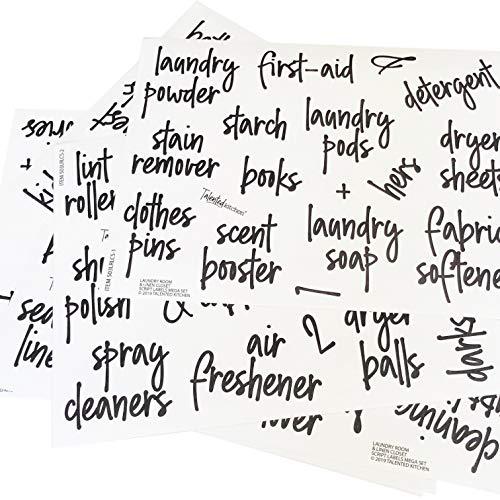 laundry
powder
first-aid
&
detergent
stain
remover
starch
laundry
pods
dryer
sheets
books
+
hers
Talented Kitchen
clothes
pins
scent
booster
1
laundry
soap
fabric
softene
LAUNDRY ROOM
& LINEN CLOSET
SCRIPT LABELS MEGA SET
© 2019 TALENTED KITCHEN
ITEM S03LRLCS-2
lint
roller
ITEM S03LRLCS-1
sh
polish
spray
cleaners
air
freshener
2
dryer
balls
+
sea
line
cleaning
LAUNDRY ROOM
& LINEN CLOSET
SCRIPT LABELS MEGA SET
© 2019 TALENTED KITCHEN